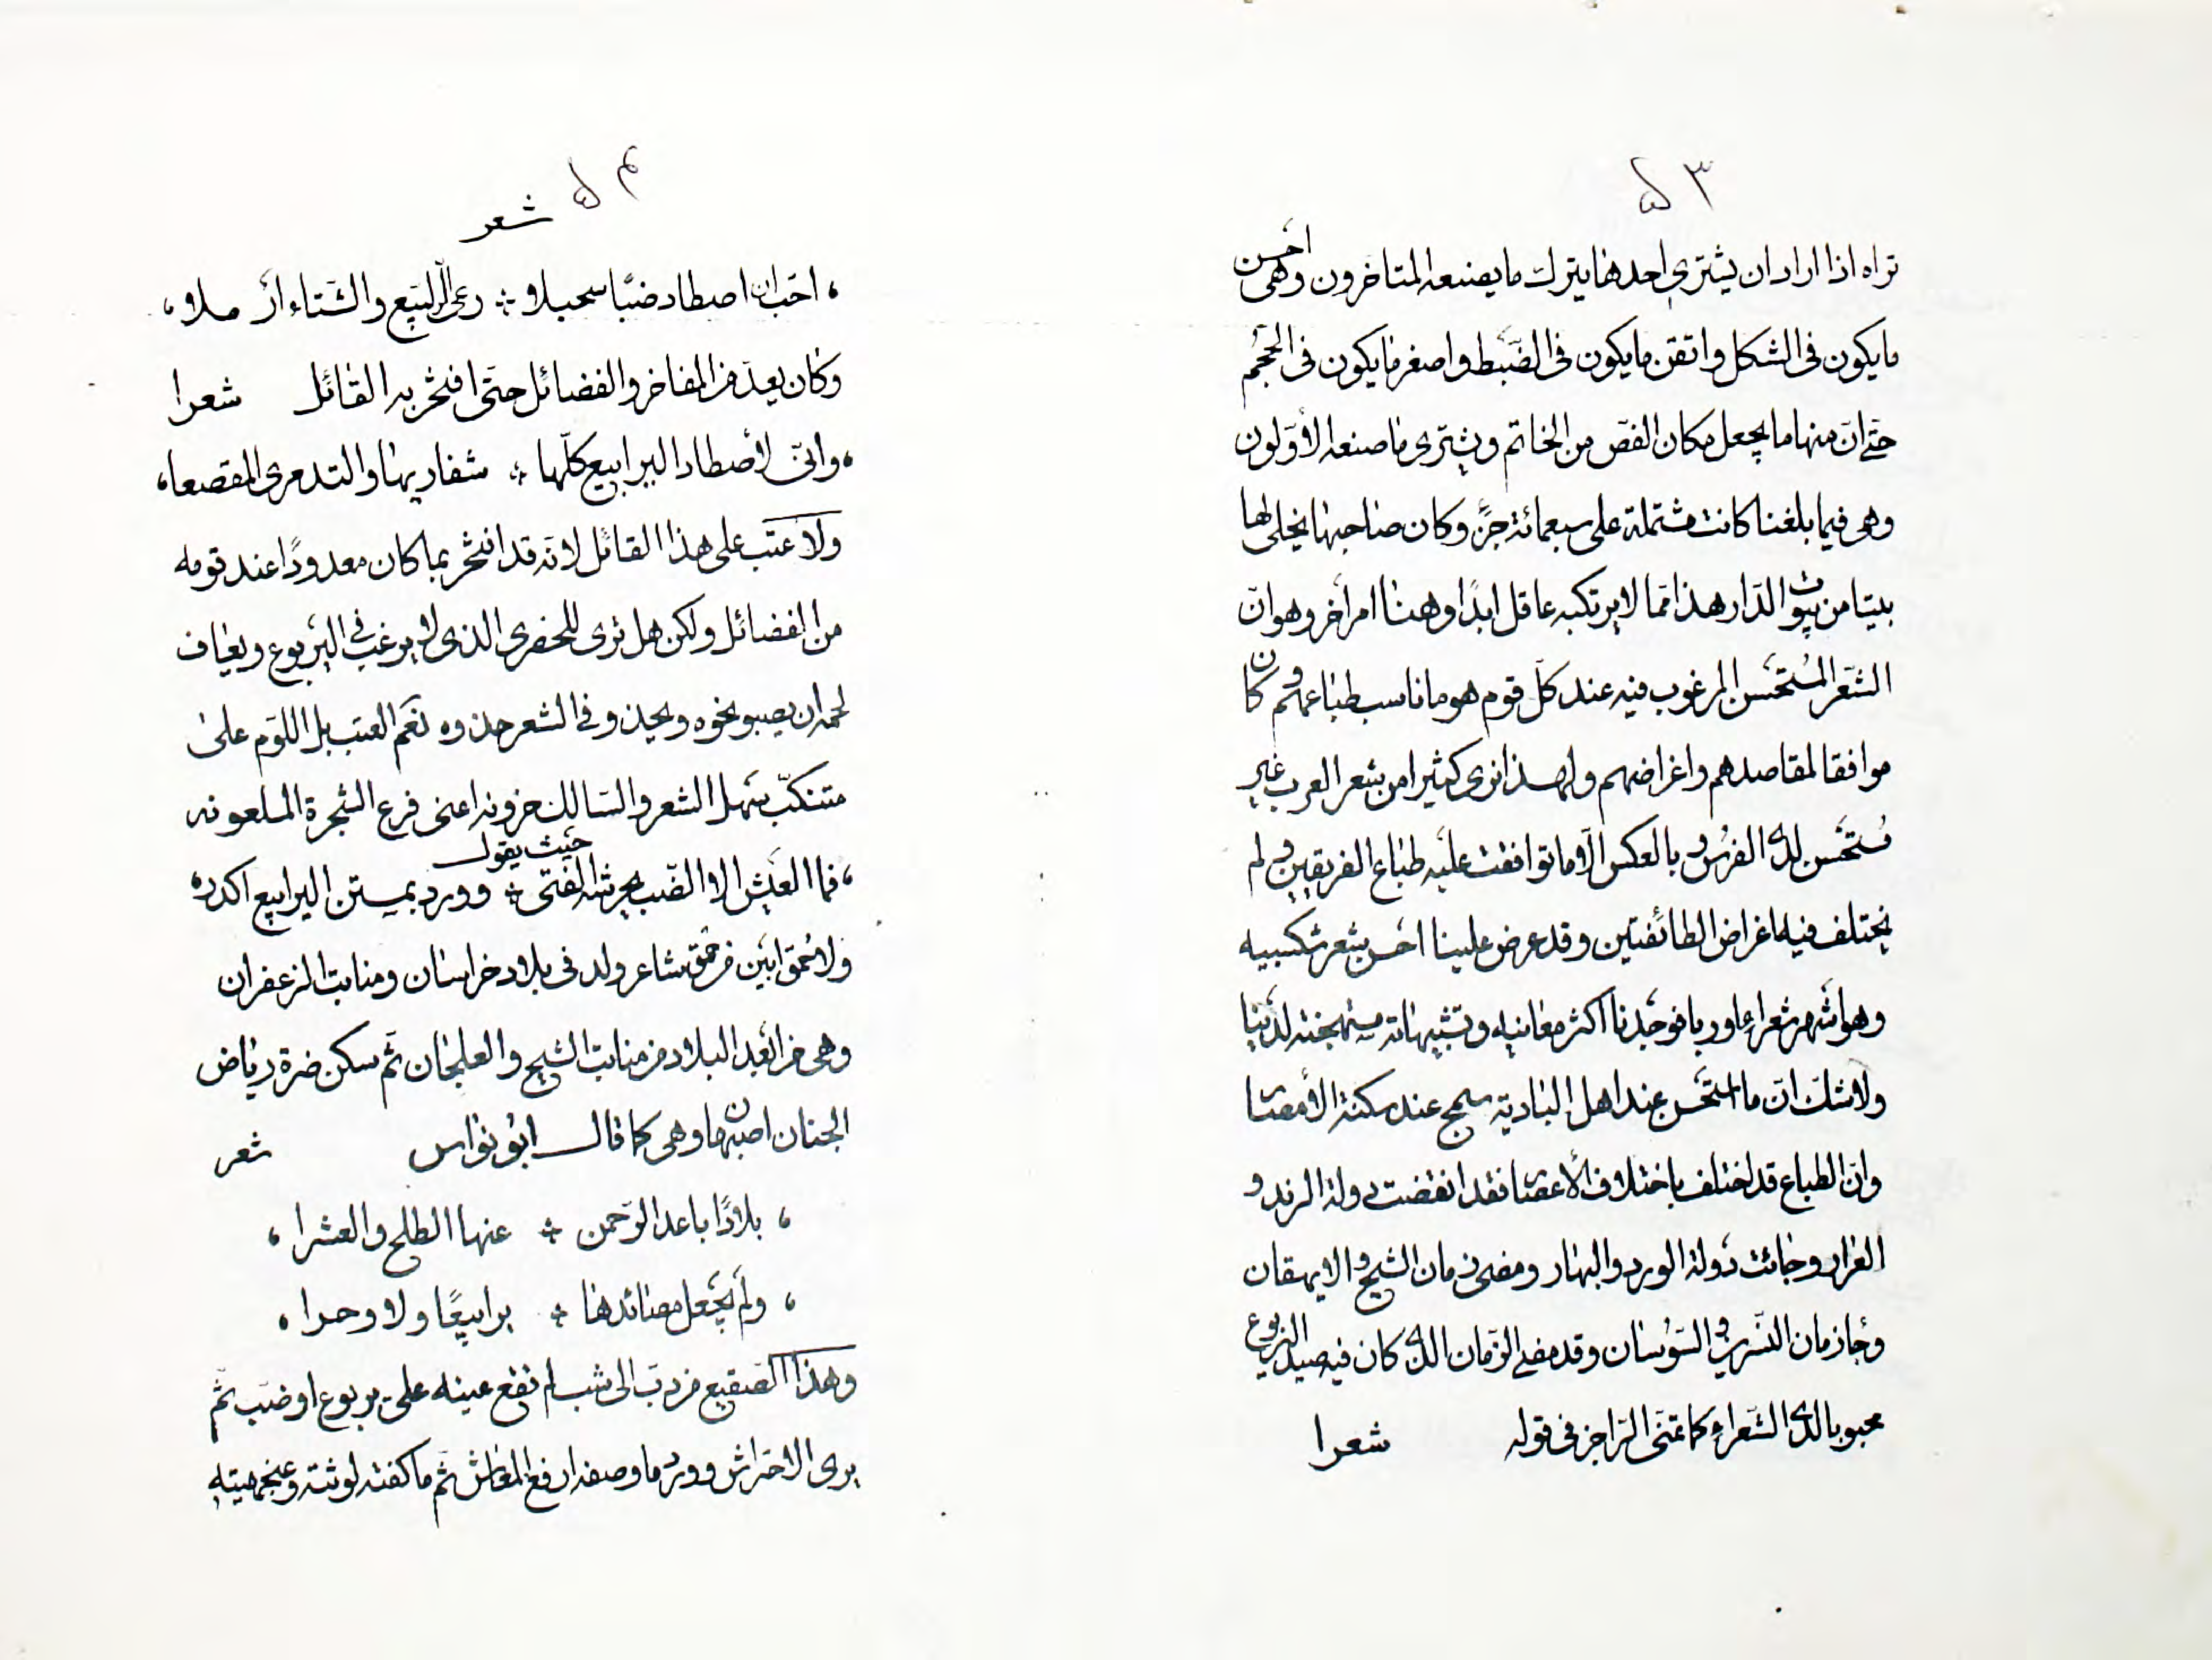 ۵۳
تراه اذا اراد ان يشتري احدها يترك ما يصنعه المتاخرون وهى احسن
ما يكون فى الشكل واتقن ما يكون فى الضّبط واصغر ما يكون فى الحجم
حتى انّ منها ما يجعل مكان الفصّ من الخاتم ويشترى ما صنعه الأوّلون
وهو فيما بلغنا كانت مشتملة على سبعمائة جزء وكان صاحبها يخلى لها
بيتا من بيوت الدّار هذا ممّا لا يرتكبه عاقل ابدًا وهنا امر اخر وهو انّ
الشّعر المُستحسن المرغوب فيه عند كلّ قوم هو ما ناسب طباعهم وكان
موافقا لمقاصدهم واغراضهم ولهذا نرى كثيرا من شعر العرب غير
مُستحسن لدى الفرس وبالعكس الّا ما توافقت عليه طباع الفريقين ولم
يختلف فيه اغراض الطائفتين وقد عرض علينا احسن شعر شكسبيه
وهو اشهر شعراء اوربا فوجدنا اكثر معانيه وتشبيهاته مستهجنة لدينا
ولا شكّ انّ ما استحسن عند اهل البادية سمج عند سكنة الأمصا
وانّ الطباع قد اختلف باختلاف الأعصا فقد انقضت دولة الرند و
العرار وجائت دولة الورد والبهار ومضى زمان الشيح والايهقان
وجاء زمان النّسرين والسّوسان وقد مضى الزّمان الذى كان فيه صيد اليربوع
محبوبا لدى الشّعراء كما تمنّى الرّاجز فى قوله شعرا
۵۴
شعر
، احبّ ان اصطاد ضبّا سحبلا ؞ رعى الرّبيع والشّتاء ارملا ،
وكان يعدّ من المفاخر والفضائل حتّى افتخر به القائل شعرا
، وانّى لأصطاد اليرابيع كلّها ؞ شفاريها والتدمرى المقصعا ،
ولا عتب على هذا القائل لانّه قد افتخر بما كان معدودًا عند قومه
من الفضائل ولكن هل ترى للحضرى الذى لا يرغب فى اليربوع ويعاف
لحمه ان يصبو نحوه ويحذو فى الشعر حذوه نعم العتب بل اللوم على
متنكّب سهل الشعر والسّالك حزونه اعنى فرع الشجرة الملعونه حيث يقول
، فما العيش الا الضّب يحرشه الفتى ؞ وورد بمستن اليرابيع اكدر ،
ولا حُمق ابين من حمق شاعر ولد فى بلاد خراسان ومنابت الزعفران
وهى من ابعد البلاد من منابت الشيح والعلجان ثمّ سكن ضرة رياض
الجنان اصبهان وهى كما قال ابو نواس شعر
، بلادًا باعد الرّحمن ؞ عنها الطلح والعشرا ،
، ولم يجعل مصائدها ؞ يرابيعًا ولا وحرا ،
وهذا الصّقيع من دبّ الى شبّ لم تقع عينه على يربوع او ضب ثمّ
يرى الاحتراش وورد ما وصفه ارفع المعاش ثمّ ما كفته لوثته وعنجهيته